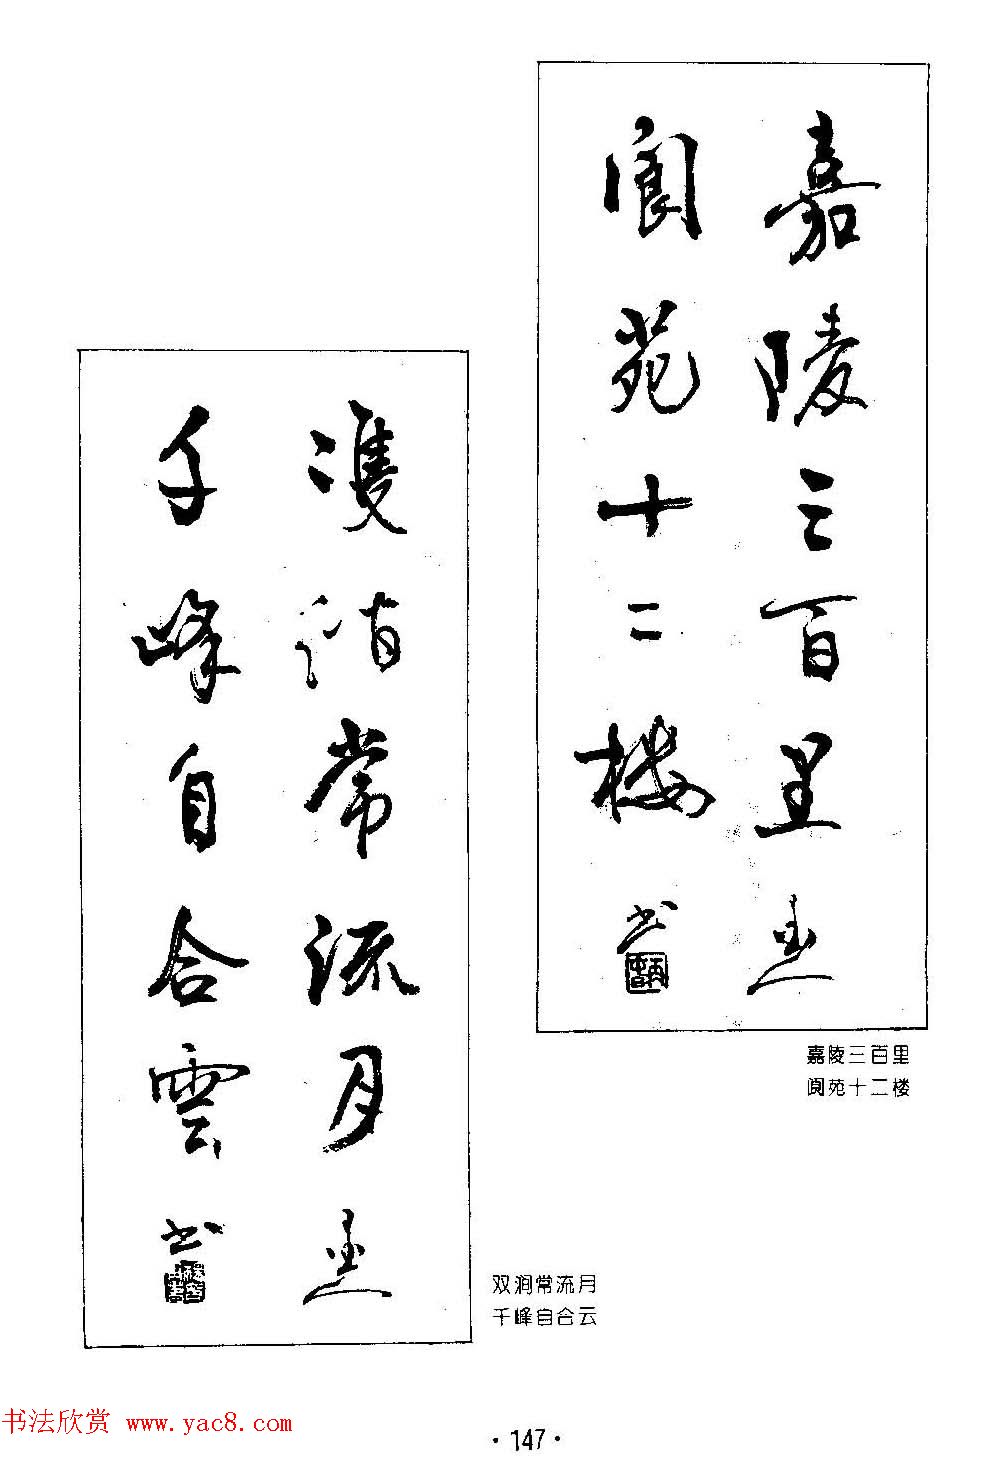 嘉陵三百里
阆苑十二楼
书
嘉陵三百里
阆苑十二楼
雙澗常流月
千峰自合雲
书
双涧常流月
千峰自合云
书法欣赏 www.yac8.com
·147·